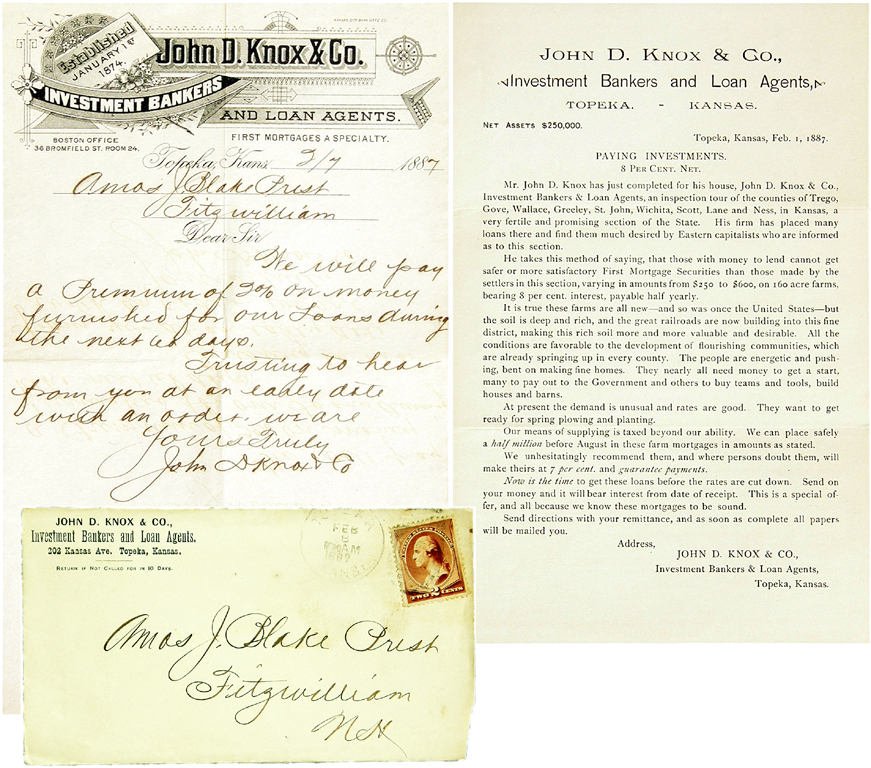 KANSAS CITY BANK NOTE CO.
Established
JANUARY 1st
1874.
John D. Knox & Co.
INVESTMENT BANKERS
AND LOAN AGENTS.
FIRST MORTGAGES A SPECIALTY.
BOSTON OFFICE
36 BROMFIELD ST. ROOM 24.
Topeka, Kans. 2/7 1887
Amos J. Blake Prest
Fitzwilliam
Dear Sir
We will pay
a Premium of 2% on money
furnished for our Loans during
the next 60 days.
Trusting to hear
from you at an early date
with an order, we are
Yours Truly
John D Knox & Co
JOHN D. KNOX & CO.,
Investment Bankers and Loan Agents,
TOPEKA. - KANSAS.
NET ASSETS $250,000.
Topeka, Kansas, Feb. 1, 1887.
PAYING INVESTMENTS.
8 PER CENT. NET.
Mr. John D. Knox has just completed for his house, John D. Knox & Co.,
Investment Bankers & Loan Agents, an inspection tour of the counties of Trego,
Gove, Wallace, Greeley, St. John, Wichita, Scott, Lane and Ness, in Kansas, a
very fertile and promising section of the State. His firm has placed many
loans there and find them much desired by Eastern capitalists who are informed
as to this section.
He takes this method of saying, that those with money to lend cannot get
safer or more satisfactory First Mortgage Securities than those made by the
settlers in this section, varying in amounts from $250 to $600, on 160 acre farms,
bearing 8 per cent. interest, payable half yearly.
It is true these farms are all new—and so was once the United States—but
the soil is deep and rich, and the great railroads are now building into this fine
district, making this rich soil more and more valuable and desirable. All the
conditions are favorable to the development of flourishing communities, which
are already springing up in every county. The people are energetic and push-
ing, bent on making fine homes. They nearly all need money to get a start,
many to pay out to the Government and others to buy teams and tools, build
houses and barns.
At present the demand is unusual and rates are good. They want to get
ready for spring plowing and planting.
Our means of supplying is taxed beyond our ability. We can place safely
a half million before August in these farm mortgages in amounts as stated.
We unhesitatingly recommend them, and where persons doubt them, will
make theirs at 7 per cent. and guarantee payments.
Now is the time to get these loans before the rates are cut down. Send on
your money and it will bear interest from date of receipt. This is a special of-
fer, and all because we know these mortgages to be sound.
Send directions with your remittance, and as soon as complete all papers
will be mailed you.
Address,
JOHN D. KNOX & CO.,
Investment Bankers & Loan Agents,
Topeka, Kansas.
JOHN D. KNOX & CO.,
Investment Bankers and Loan Agents.
202 Kansas Ave. Topeka, Kansas.
RETURN IF NOT CALLED FOR IN 10 DAYS.
FEB
8
AM
TWO 2 CENTS
Amos J. Blake Prest
Fitzwilliam
N H